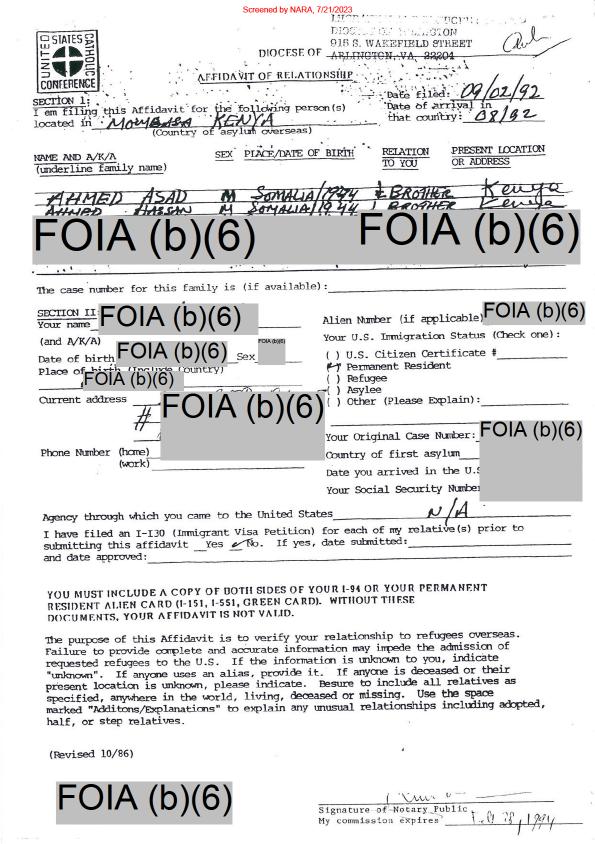 Screened by NARA, 7/21/2023
UNITED STATES CATHOLIC CONFERENCE
DIOCESE OF ARLINGTON
915 S. WAKEFIELD STREET
DIOCESE OF ARLINGTON, VA. 22204
AFFIDAVIT OF RELATIONSHIP
SECTION 1: Date filed: 09/02/92
I am filing this Affidavit for the following person(s) Date of arrival in
located in MOMBASA KENYA that country: 08/92
(Country of asylum overseas)
NAME AND A/K/A SEX PLACE/DATE OF BIRTH RELATION PRESENT LOCATION
(underline family name) TO YOU OR ADDRESS
AHMED ASAD M SOMALIA/1944 BROTHER Kenya
AHMED HASSAN M SOMALIA/1944 BROTHER Kenya
FOIA (b)(6) FOIA (b)(6)
The case number for this family is (if available):
SECTION II:
Your name FOIA (b)(6) Alien Number (if applicable) FOIA (b)(6)
(and A/K/A) Your U.S. Immigration Status (Check one):
Date of birth FOIA (b)(6) Sex FOIA (b)(6) ( ) U.S. Citizen Certificate #
Place of birth (Include Country) (✓) Permanent Resident
FOIA (b)(6) ( ) Refugee
( ) Asylee
Current address ( ) Other (Please Explain):
# FOIA (b)(6)
Your Original Case Number: FOIA (b)(6)
Phone Number (home) Country of first asylum
(work) Date you arrived in the U.S
Your Social Security Number
Agency through which you came to the United States N/A
I have filed an I-I30 (Immigrant Visa Petition) for each of my relative(s) prior to
submitting this affidavit Yes ✓ No. If yes, date submitted:
and date approved:
YOU MUST INCLUDE A COPY OF BOTH SIDES OF YOUR I-94 OR YOUR PERMANENT
RESIDENT ALIEN CARD (I-151, I-551, GREEN CARD). WITHOUT THESE
DOCUMENTS, YOUR AFFIDAVIT IS NOT VALID.
The purpose of this Affidavit is to verify your relationship to refugees overseas.
Failure to provide complete and accurate information may impede the admission of
requested refugees to the U.S. If the information is unknown to you, indicate
"unknown". If anyone uses an alias, provide it. If anyone is deceased or their
present location is unknown, please indicate. Besure to include all relatives as
specified, anywhere in the world, living, deceased or missing. Use the space
marked "Additons/Explanations" to explain any unusual relationships including adopted,
half, or step relatives.
(Revised 10/86)
FOIA (b)(6)
Signature of Notary Public
My commission expires Feb 28, 1994